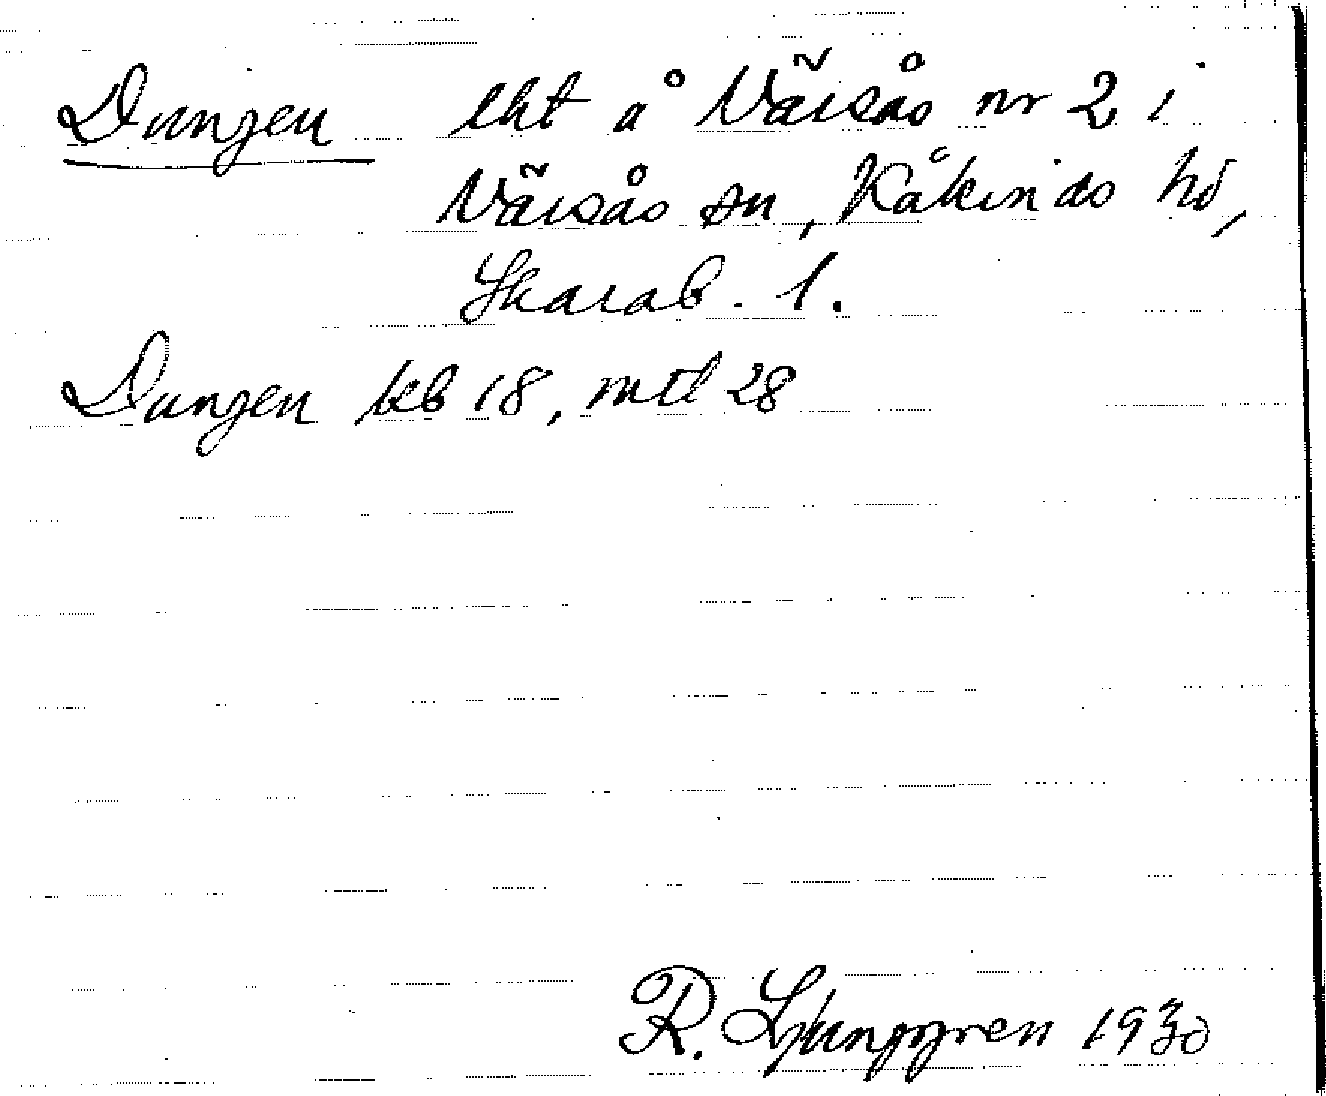 Dungen lht å Värsås nr 2 i
Värsås sn, Kåkinds hd,
Skarab. l.
Dungen kb 18, mtl 28
R. Ljunggren 1930